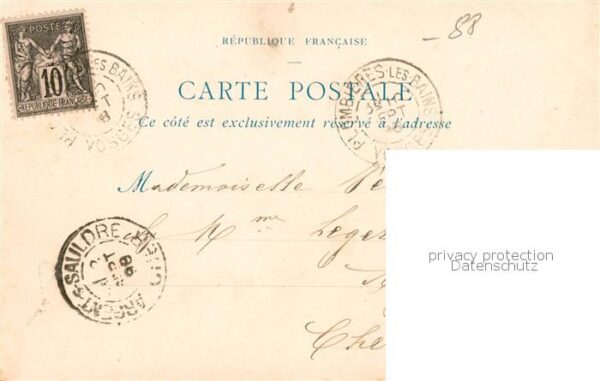 88
POSTE
10
RÉPUBLIQUE FRANÇAISE
LES BAINS
VOSGES
RÉPUBLIQUE FRANÇAISE
CARTE POSTALE
Ce côté est exclusivement réservé à l'adresse
PLOMBIÈRES-LES-BAINS
Mademoiselle
Mme Leger
Che
ARGENT-S-SAULDRE CHER
privacy protection
Datenschutz